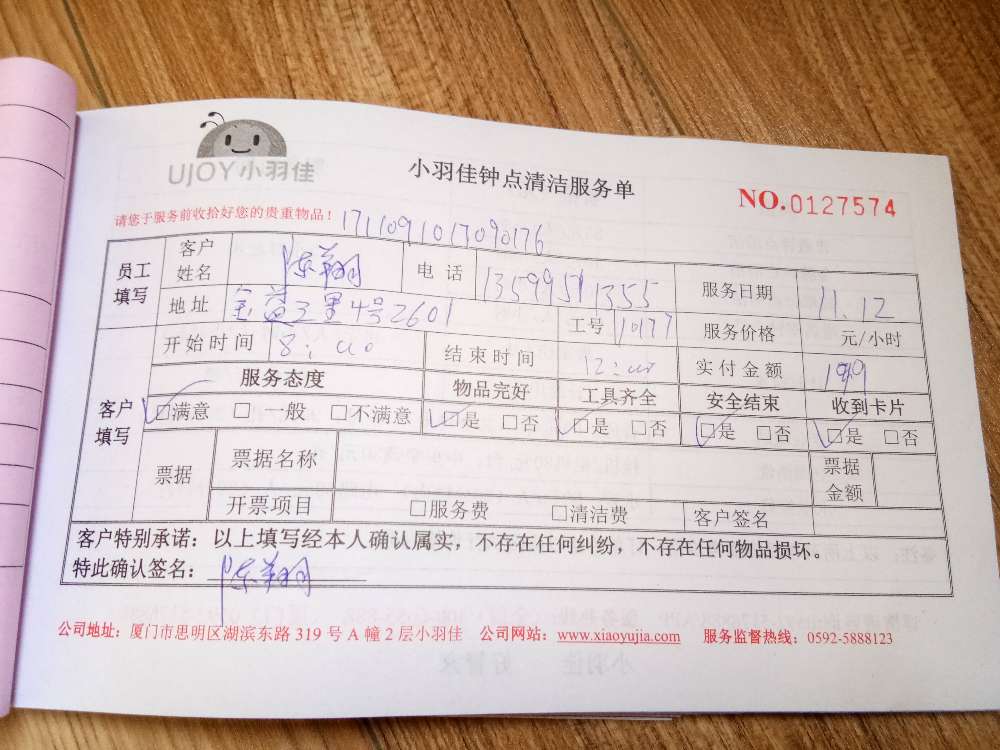 UJOY小羽佳
小羽佳钟点清洁服务单
NO.0127574
请您于服务前收拾好您的贵重物品！
1711091017090176
员工填写 客户姓名 陈翔 电话 13599511355 服务日期 11.12
地址 金益三里4号2601 工号 10177 服务价格 元/小时
开始时间 8:00 结束时间 12:00 实付金额 149
客户填写 服务态度 物品完好 工具齐全 安全结束 收到卡片
☑满意 □一般 □不满意 ☑是 □否 ☑是 □否 ☑是 □否 ☑是 □否
票据 票据名称 票据金额
开票项目 □服务费 □清洁费 客户签名
客户特别承诺：以上填写经本人确认属实，不存在任何纠纷，不存在任何物品损坏。
特此确认签名：陈翔
公司地址：厦门市思明区湖滨东路 319 号 A 幢 2 层小羽佳 公司网站：www.xiaoyujia.com 服务监督热线：0592-5888123